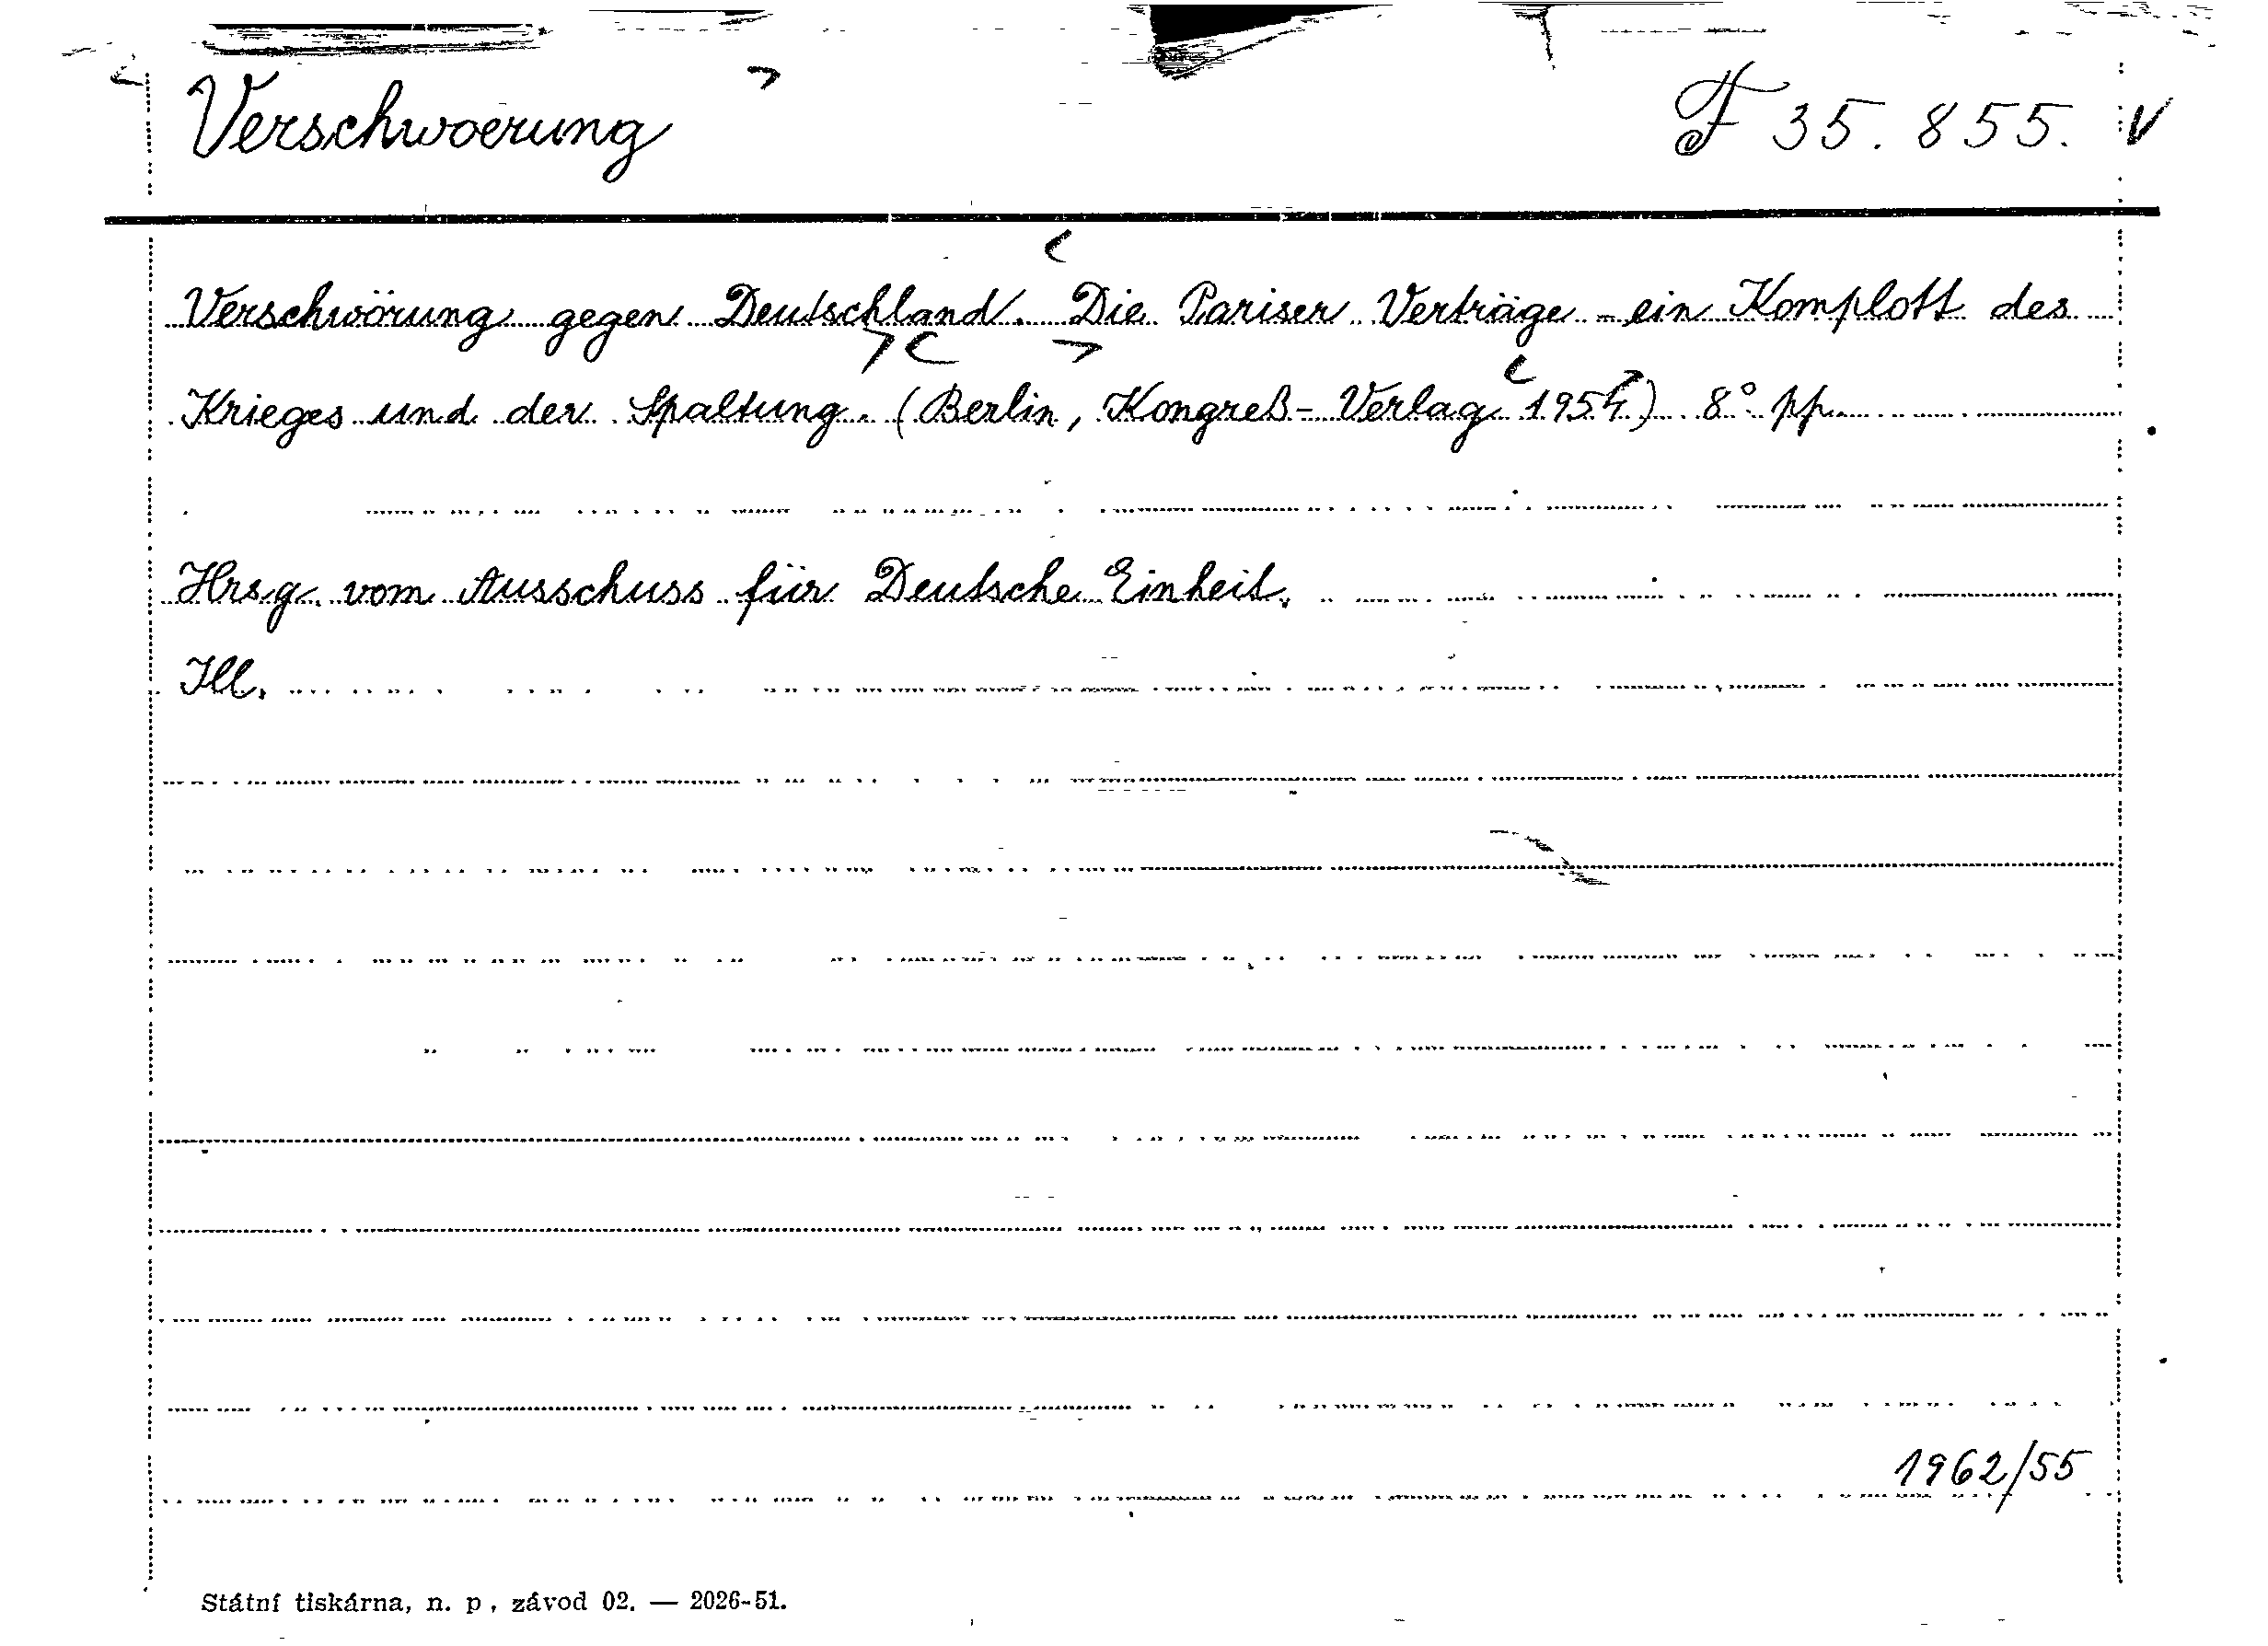 Verschwoerung F 35.855. V
Verschwörung gegen Deutschland. Die Pariser Verträge - ein Komplott des
Krieges und der Spaltung. (Berlin, Kongreß-Verlag 1954) 8° pp.
Hrsg. vom Ausschuss für Deutsche Einheit.
Ill.
1962/55
Státní tiskárna, n. p., závod 02. — 2026-51.